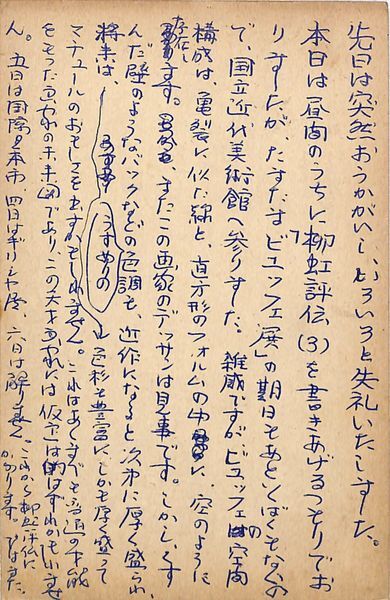 先日は突然おうかがいし、いろいろと失礼いたしました。
本日は昼間のうちに「柳虹評伝(3)を書きあげるつもりでお
りましたが、たまたまビュッフェ展」の期日もあといくばくもないの
で、国立近代美術館へ参りました。雑感ですがビュッフェの空間
構成は、亀裂に似た線と、直方形のフォルムの中に、空のように
存在し
ます。またこの画家のデッサンは見事です。しかしくす
んだ壁のようなバックなどの色調も、近作になると次第に厚く盛られ、
将来は、うすぬりの色彩も豊富にしかも厚く盛って
マチュールのおもしろさを出すかもしれません。これはあくまでも
をもった画家の未来図であり、この大き
ん。五日は国際見本市、四日はギリシヤ展、六日は
これから柳虹評伝に
かかります。